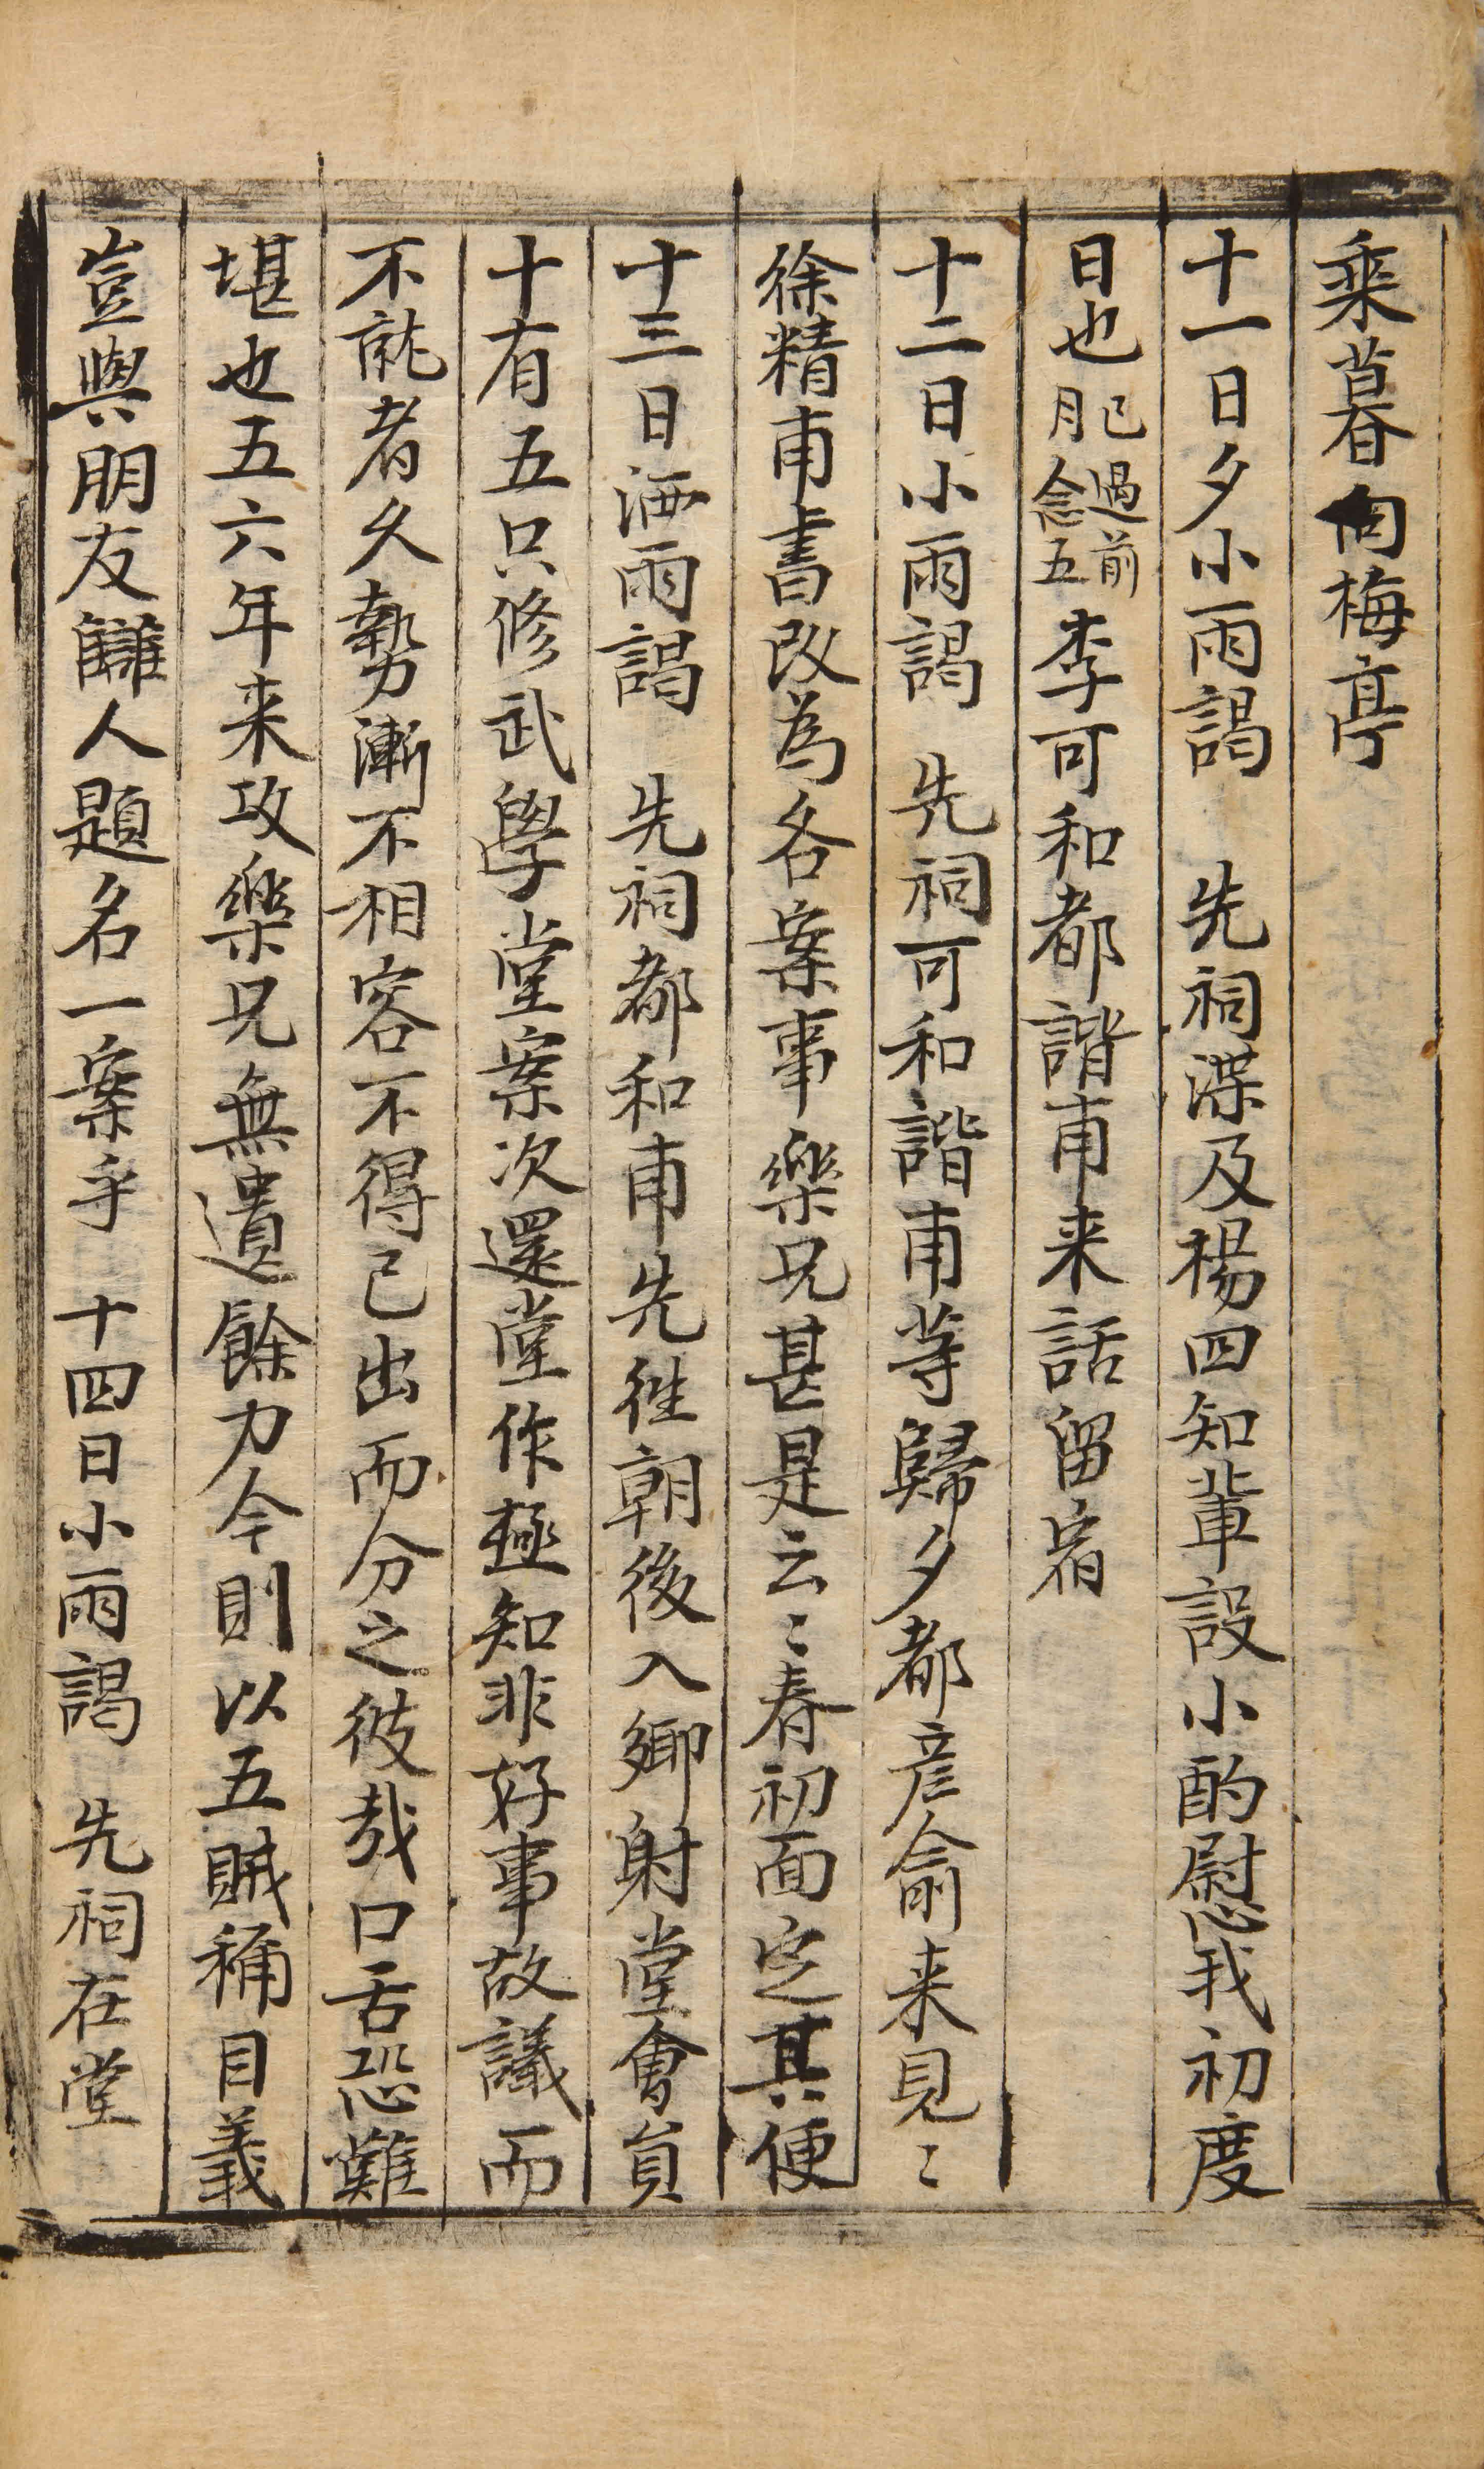 乘暮向梅亭
十一日夕小雨謁　先祠渫及楊四知軰設小酌慰我初度
日也已過前月念五李可和都諧甫来話留宿
十二日小雨謁　先祠可和諧甫等歸夕都彦俞来見〻
徐精甫書改為各案事樂兄甚是云〻春初面定其便
十三日洒雨謁　先祠都和甫先徃朝後入鄉射堂會員
十有五只修武學堂案次還堂作極知非好事故議而
不就者久勢漸不相容不得已出而分之彼哉口舌恐難
堪也五六年来攻樂兄無遺餘力今則以五賊稱目義
豈與朋友讎人題名一案乎　十四日小雨謁　先祠在堂